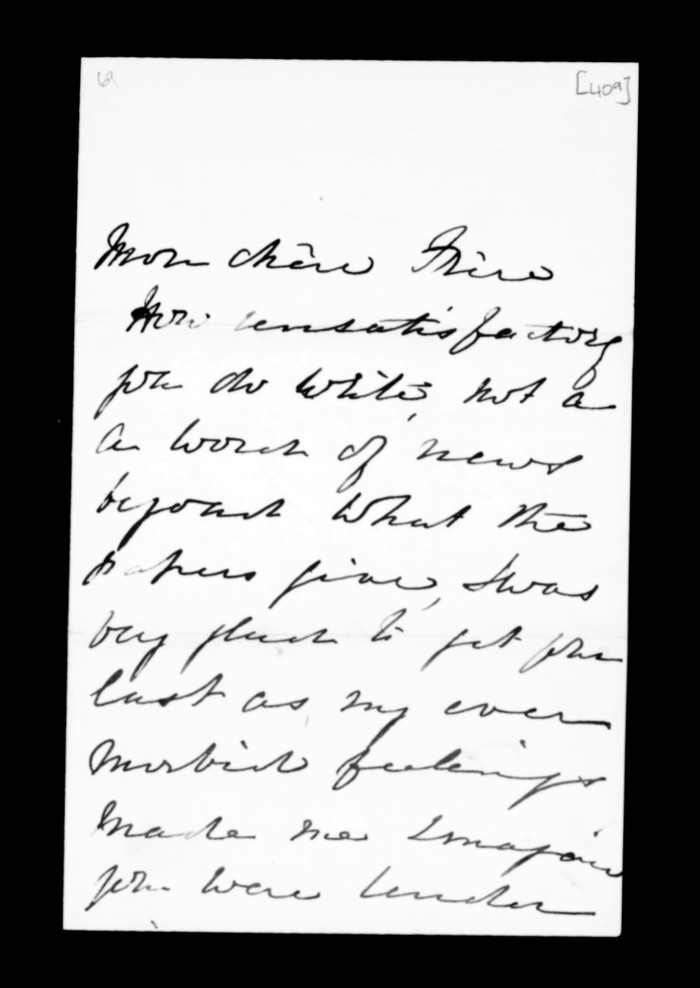 69
[409]
Mon chère Frère
How unsatisfactory
you do write, not a
a word of news
beyond what the
papers give, I was
very glad to get your
last as my ever
morbid feelings
made me imagine
you were under